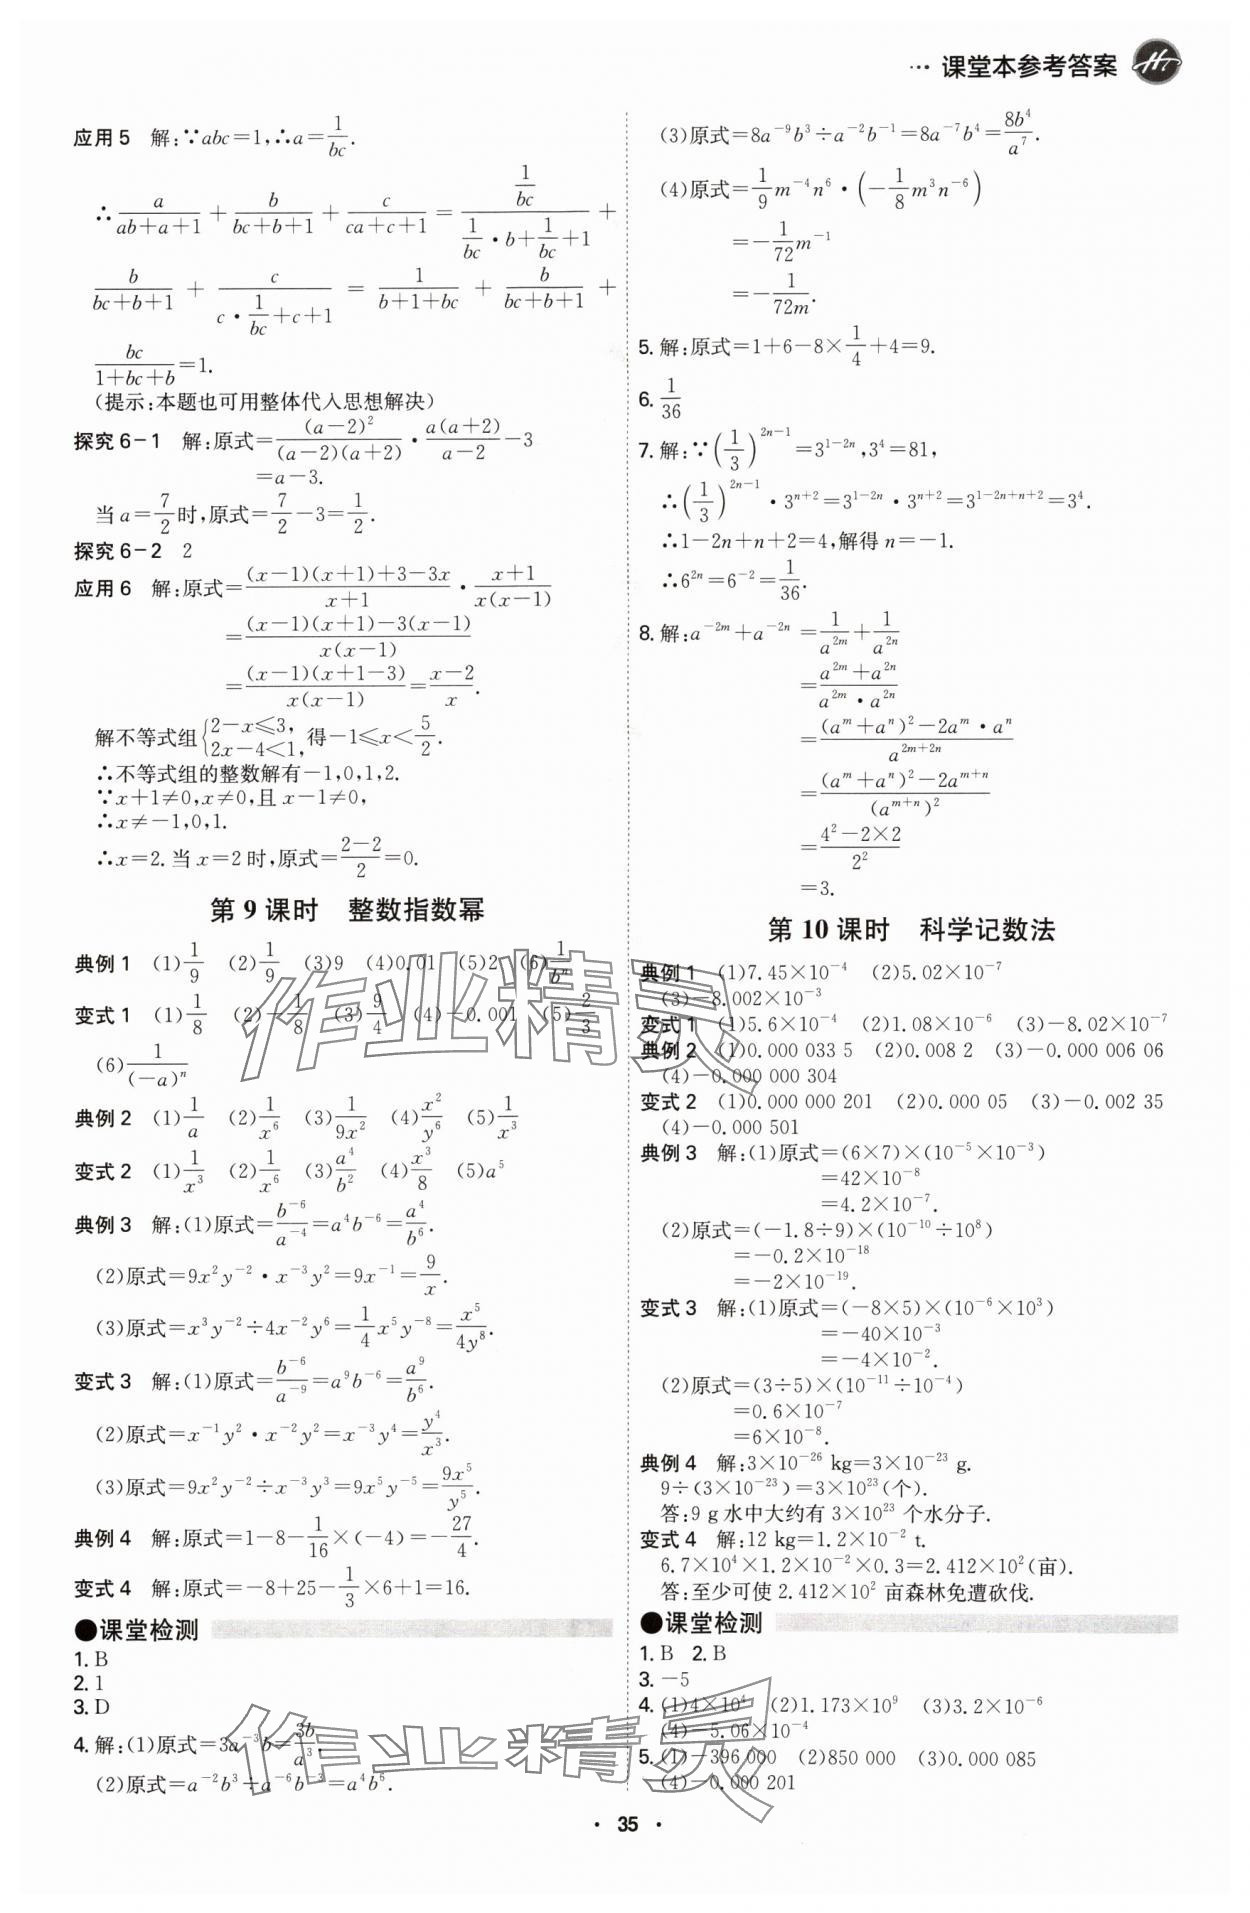 ··· 课堂本参考答案
应用5 解:∵abc=1,∴a=1/(bc).
∴a/(ab+a+1)+b/(bc+b+1)+c/(ca+c+1)=(1/(bc))/((1/(bc))·b+1/(bc)+1)+
b/(bc+b+1)+c/(c·(1/(bc))+c+1)=1/(b+1+bc)+b/(bc+b+1)+
bc/(1+bc+b)=1.
(提示:本题也可用整体代入思想解决)
探究6-1 解:原式=(a-2)²/((a-2)(a+2))·a(a+2)/(a-2)-3
=a-3.
当a=7/2时,原式=7/2-3=1/2.
探究6-2 2
应用6 解:原式=((x-1)(x+1)+3-3x)/(x+1)·(x+1)/(x(x-1))
=((x-1)(x+1)-3(x-1))/(x(x-1))
=((x-1)(x+1-3))/(x(x-1))=(x-2)/x.
解不等式组{2-x≤3, 2x-4<1,得-1≤x<5/2.
∴不等式组的整数解有-1,0,1,2.
∵x+1≠0,x≠0,且x-1≠0,
∴x≠-1,0,1.
∴x=2.当x=2时,原式=(2-2)/2=0.
第9课时 整数指数幂
典例1 (1)1/9 (2)1/9 (3)9 (4)0.01 (5)2 (6)1/bⁿ
变式1 (1)1/8 (2)-1/8 (3)9/4 (4)-0.001 (5)-2/3
(6)1/(-a)ⁿ
典例2 (1)1/a (2)1/x⁶ (3)1/(9x²) (4)x²/y⁶ (5)1/x³
变式2 (1)1/x³ (2)1/x⁶ (3)a⁴/b² (4)x³/8 (5)a⁵
典例3 解:(1)原式=b⁻⁶/a⁻⁴=a⁴b⁻⁶=a⁴/b⁶.
(2)原式=9x²y⁻²·x⁻³y²=9x⁻¹=9/x.
(3)原式=x³y⁻²÷4x⁻²y⁶=(1/4)x⁵y⁻⁸=x⁵/(4y⁸).
变式3 解:(1)原式=b⁻⁶/a⁻⁹=a⁹b⁻⁶=a⁹/b⁶.
(2)原式=x⁻¹y²·x⁻²y²=x⁻³y⁴=y⁴/x³.
(3)原式=9x²y⁻²÷x⁻³y³=9x⁵y⁻⁵=9x⁵/y⁵.
典例4 解:原式=1-8-(1/16)×(-4)=-27/4.
变式4 解:原式=-8+25-(1/3)×6+1=16.
●课堂检测
1. B
2. 1
3. D
4. 解:(1)原式=3a⁻³b=3b/a³.
(2)原式=a⁻²b³÷a⁻⁶b⁻³=a⁴b⁶.
(3)原式=8a⁻⁹b³÷a⁻²b⁻¹=8a⁻⁷b⁴=8b⁴/a⁷.
(4)原式=(1/9)m⁻⁴n⁶·(-(1/8)m³n⁻⁶)
=-(1/72)m⁻¹
=-1/(72m).
5. 解:原式=1+6-8×1/4+4=9.
6. 1/36
7. 解:∵(1/3)²ⁿ⁻¹=3¹⁻²ⁿ,3⁴=81,
∴(1/3)²ⁿ⁻¹·3ⁿ⁺²=3¹⁻²ⁿ·3ⁿ⁺²=3¹⁻²ⁿ⁺ⁿ⁺²=3⁴.
∴1-2n+n+2=4,解得n=-1.
∴6²ⁿ=6⁻²=1/36.
8. 解:a⁻²ᵐ+a⁻²ⁿ=1/a²ᵐ+1/a²ⁿ
=(a²ᵐ+a²ⁿ)/(a²ᵐ·a²ⁿ)
=((aᵐ+aⁿ)²-2aᵐ·aⁿ)/a²ᵐ⁺²ⁿ
=((aᵐ+aⁿ)²-2aᵐ⁺ⁿ)/(aᵐ⁺ⁿ)²
=(4²-2×2)/2²
=3.
第10课时 科学记数法
典例1 (1)7.45×10⁻⁴ (2)5.02×10⁻⁷
(3)-8.002×10⁻³
变式1 (1)5.6×10⁻⁴ (2)1.08×10⁻⁶ (3)-8.02×10⁻⁷
典例2 (1)0.000 033 5 (2)0.008 2 (3)-0.000 006 06
(4)-0.000 000 304
变式2 (1)0.000 000 201 (2)0.000 05 (3)-0.002 35
(4)-0.000 501
典例3 解:(1)原式=(6×7)×(10⁻⁵×10⁻³)
=42×10⁻⁸
=4.2×10⁻⁷.
(2)原式=(-1.8÷9)×(10⁻¹⁰÷10⁸)
=-0.2×10⁻¹⁸
=-2×10⁻¹⁹.
变式3 解:(1)原式=(-8×5)×(10⁻⁶×10³)
=-40×10⁻³
=-4×10⁻².
(2)原式=(3÷5)×(10⁻¹¹÷10⁻⁴)
=0.6×10⁻⁷
=6×10⁻⁸.
典例4 解:3×10⁻²⁶ kg=3×10⁻²³ g.
9÷(3×10⁻²³)=3×10²³(个).
答:9 g水中大约有3×10²³个水分子.
变式4 解:12 kg=1.2×10⁻² t.
6.7×10⁴×1.2×10⁻²×0.3=2.412×10²(亩).
答:至少可使2.412×10²亩森林免遭砍伐.
●课堂检测
1. B 2. B
3. -5
4. (1)4×10⁴ (2)1.173×10⁹ (3)3.2×10⁻⁶
(4)-5.06×10⁻⁴
5. (1)-396 000 (2)850 000 (3)0.000 085
(4)-0.000 201
作业精灵
作业精灵
· 35 ·